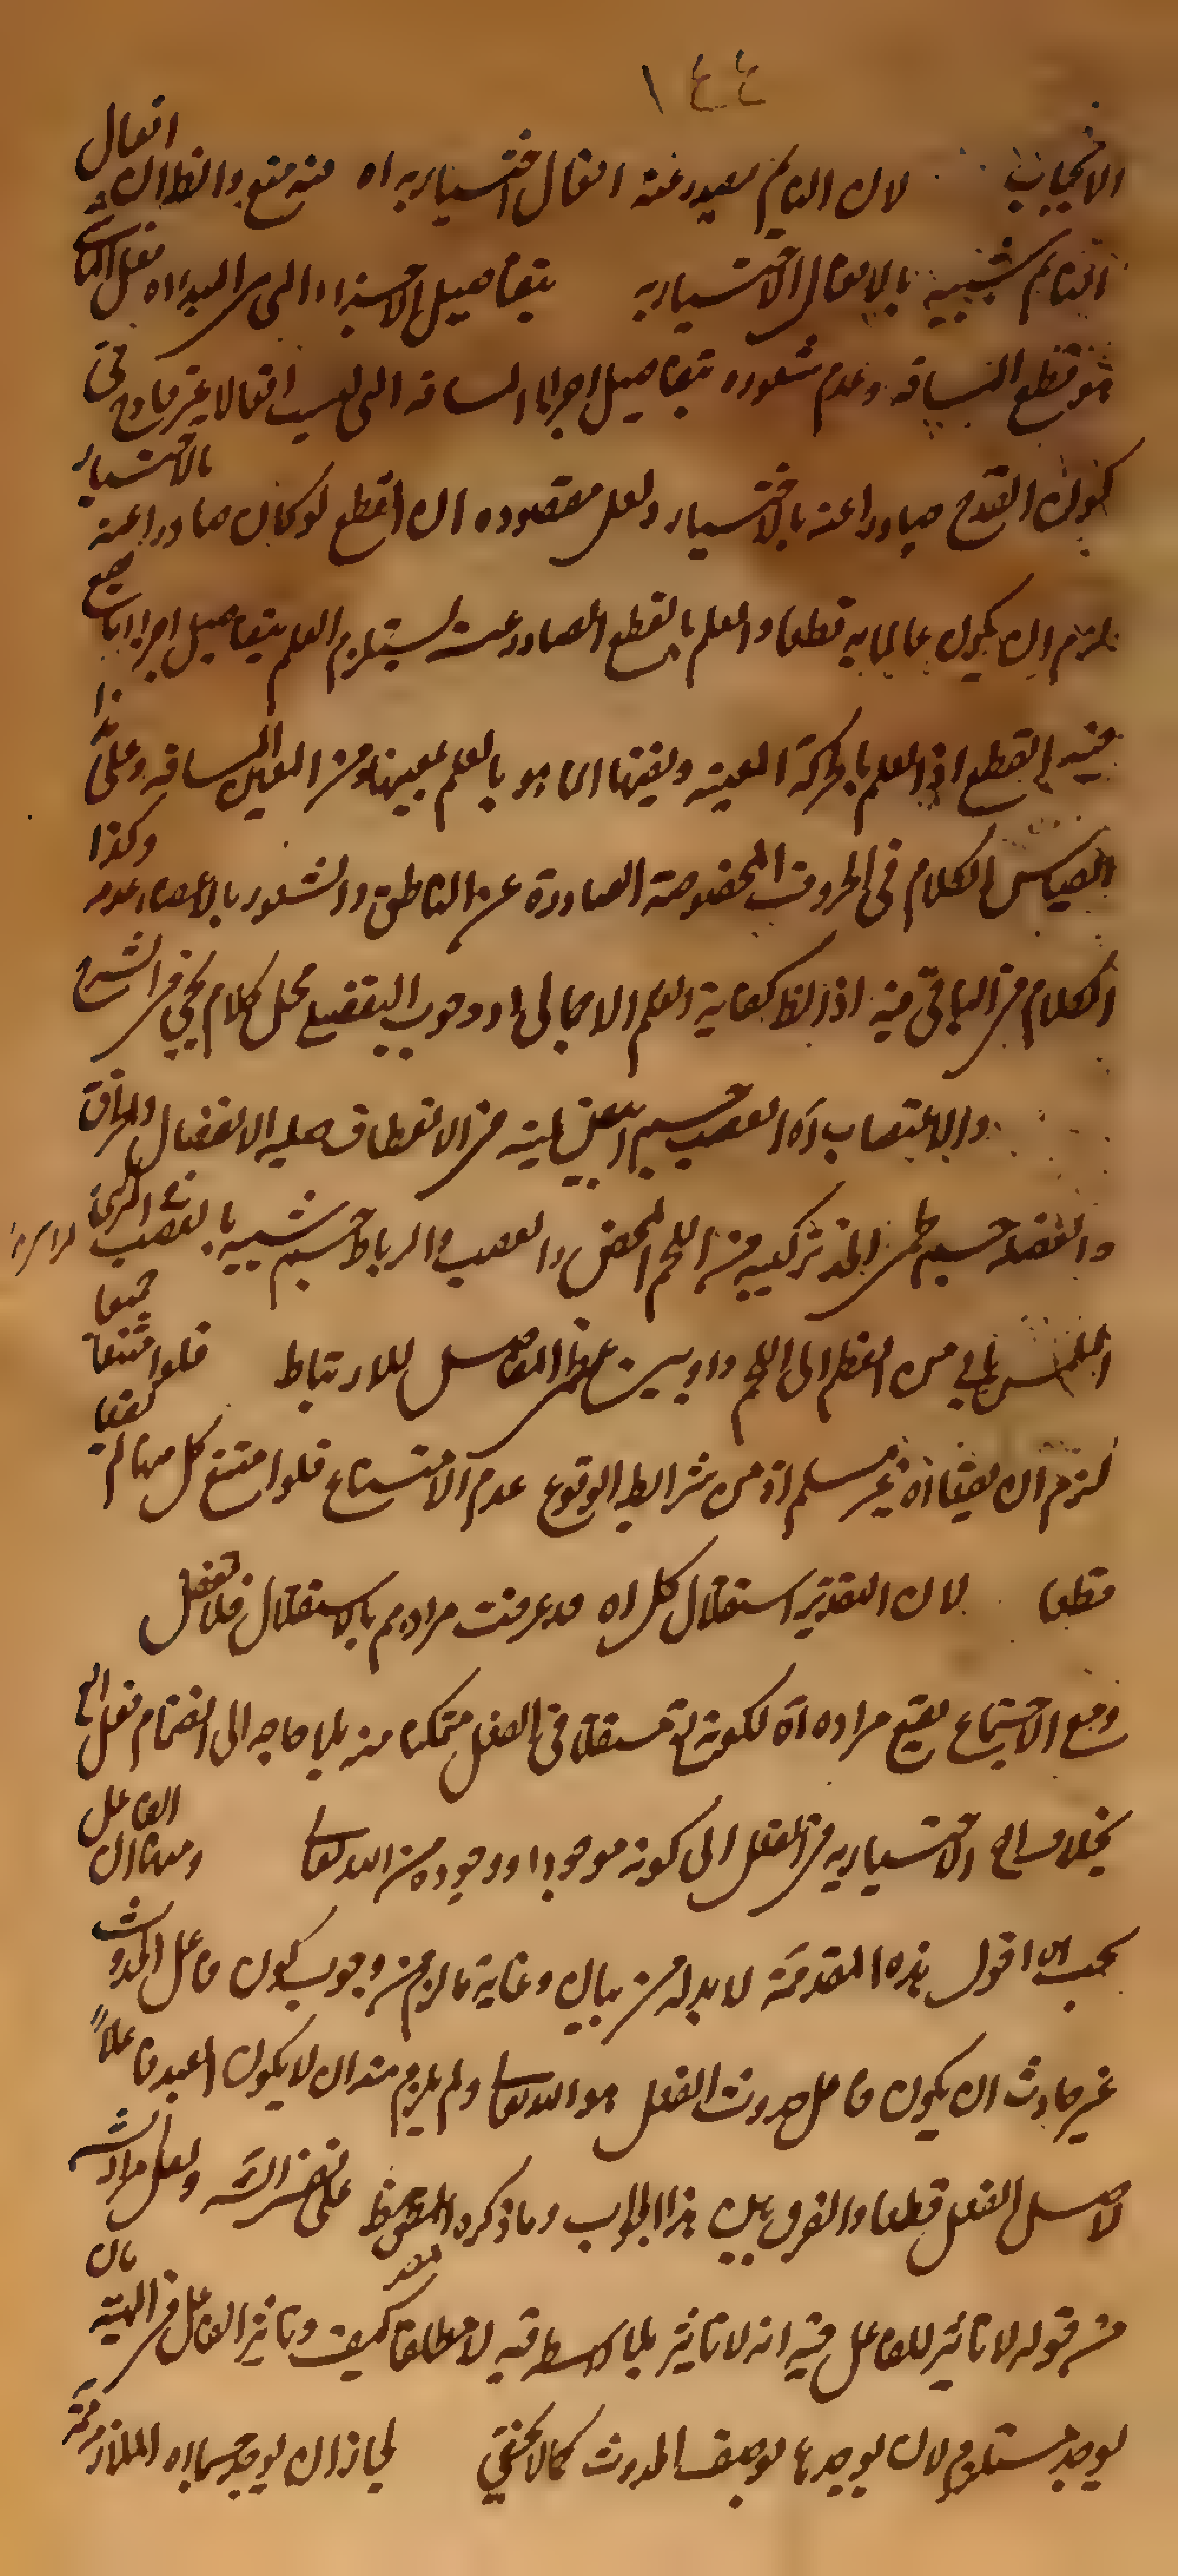 ١٤٤
الايجاب لان النايم يصدر عنه افعال اختيارية اه فيه منع والظ ان افعال
النايم شبيه بالافعال الاختيارية بتفاصيل الاجزاء التى بين المبدأ اه
هو قطع المسافة وعدم شعوره بتفاصيل اجزاء المسافة التى ليست افعالا غير قادح فى
كون القدح صادرا عنه بالاختيار ولعل مقصوده ان القطع لو كان صادرا عنه بالاختيار
لزم ان يكون عالما به قطعا والعلم بالقطع الصادر عنه يستلزم العلم بتفاصيل اجزاء
فيه القطع اذ العلم بالحركة المعينة وبعينها انما هو بالعلم بعينها ومن المعين المسافة وعلى هذا
القياس الكلام فى الحروف المخصوصة الصادرة عن الناطق والشعور بالاعضاء وكذا
الكلام فى الباقى فيه اذ الظ كفاية العلم الاجمالى ووجوب التفصيلى محل كلام يجئ فى الشرح
والاعصاب اه العصب جسم ابيض لينة فى الانعطاف صلبة الانفصال
والعضلة جسم لحمى تركيبه من اللحم المحض والعصب والرباط جسم شبيه بالعصب
الملمس ياتى من العظم الى اللحم او بين عظمى المفاصل للارتباط فلو امتنعا جميعا
لزم ان يقعا اه غير مسلم اذ من شرائط الوقوع عدم الامتناع فلو امتنع كل منهما لم يقعا
قطعا لان التقدير استقلال كل اه قد عرفت مرادهم بالاستقلال فلا تغفل
ومع الاجتماع يقع مراده اه لكونه تع مستقلا فى الفعل متمكنا منه بلا حاجة الى انضمام فعل
بخلاف الاختيارية فى الفعل الى كونه موجودا ووجوده من الله تعالى ومنها ان الفاعل
يجب اه اقول هذه المقدمة لا بد له من بيان وغاية ما لزم من وجوب كون فاعل الحدوث
غير حادث ان يكون فاعل حدوث الفعل هو الله تعالى ولم يلزم منه ان لا يكون العبد فاعلا
لاصل الفعل قطعا والفرق بين هذا الجواب وما ذكره المص ولعل مراد
من قوله لا تاثير للفاعل فيه انه لا تاثير بلا واسطة فيه لا مطلقا كيف وتاثير الفاعل فى الماهية بان
يوجد مستلزم لان يوجدها بوصف الحدوث كما لا يخفى لجاز ان يوجد جسما اه الملازمة